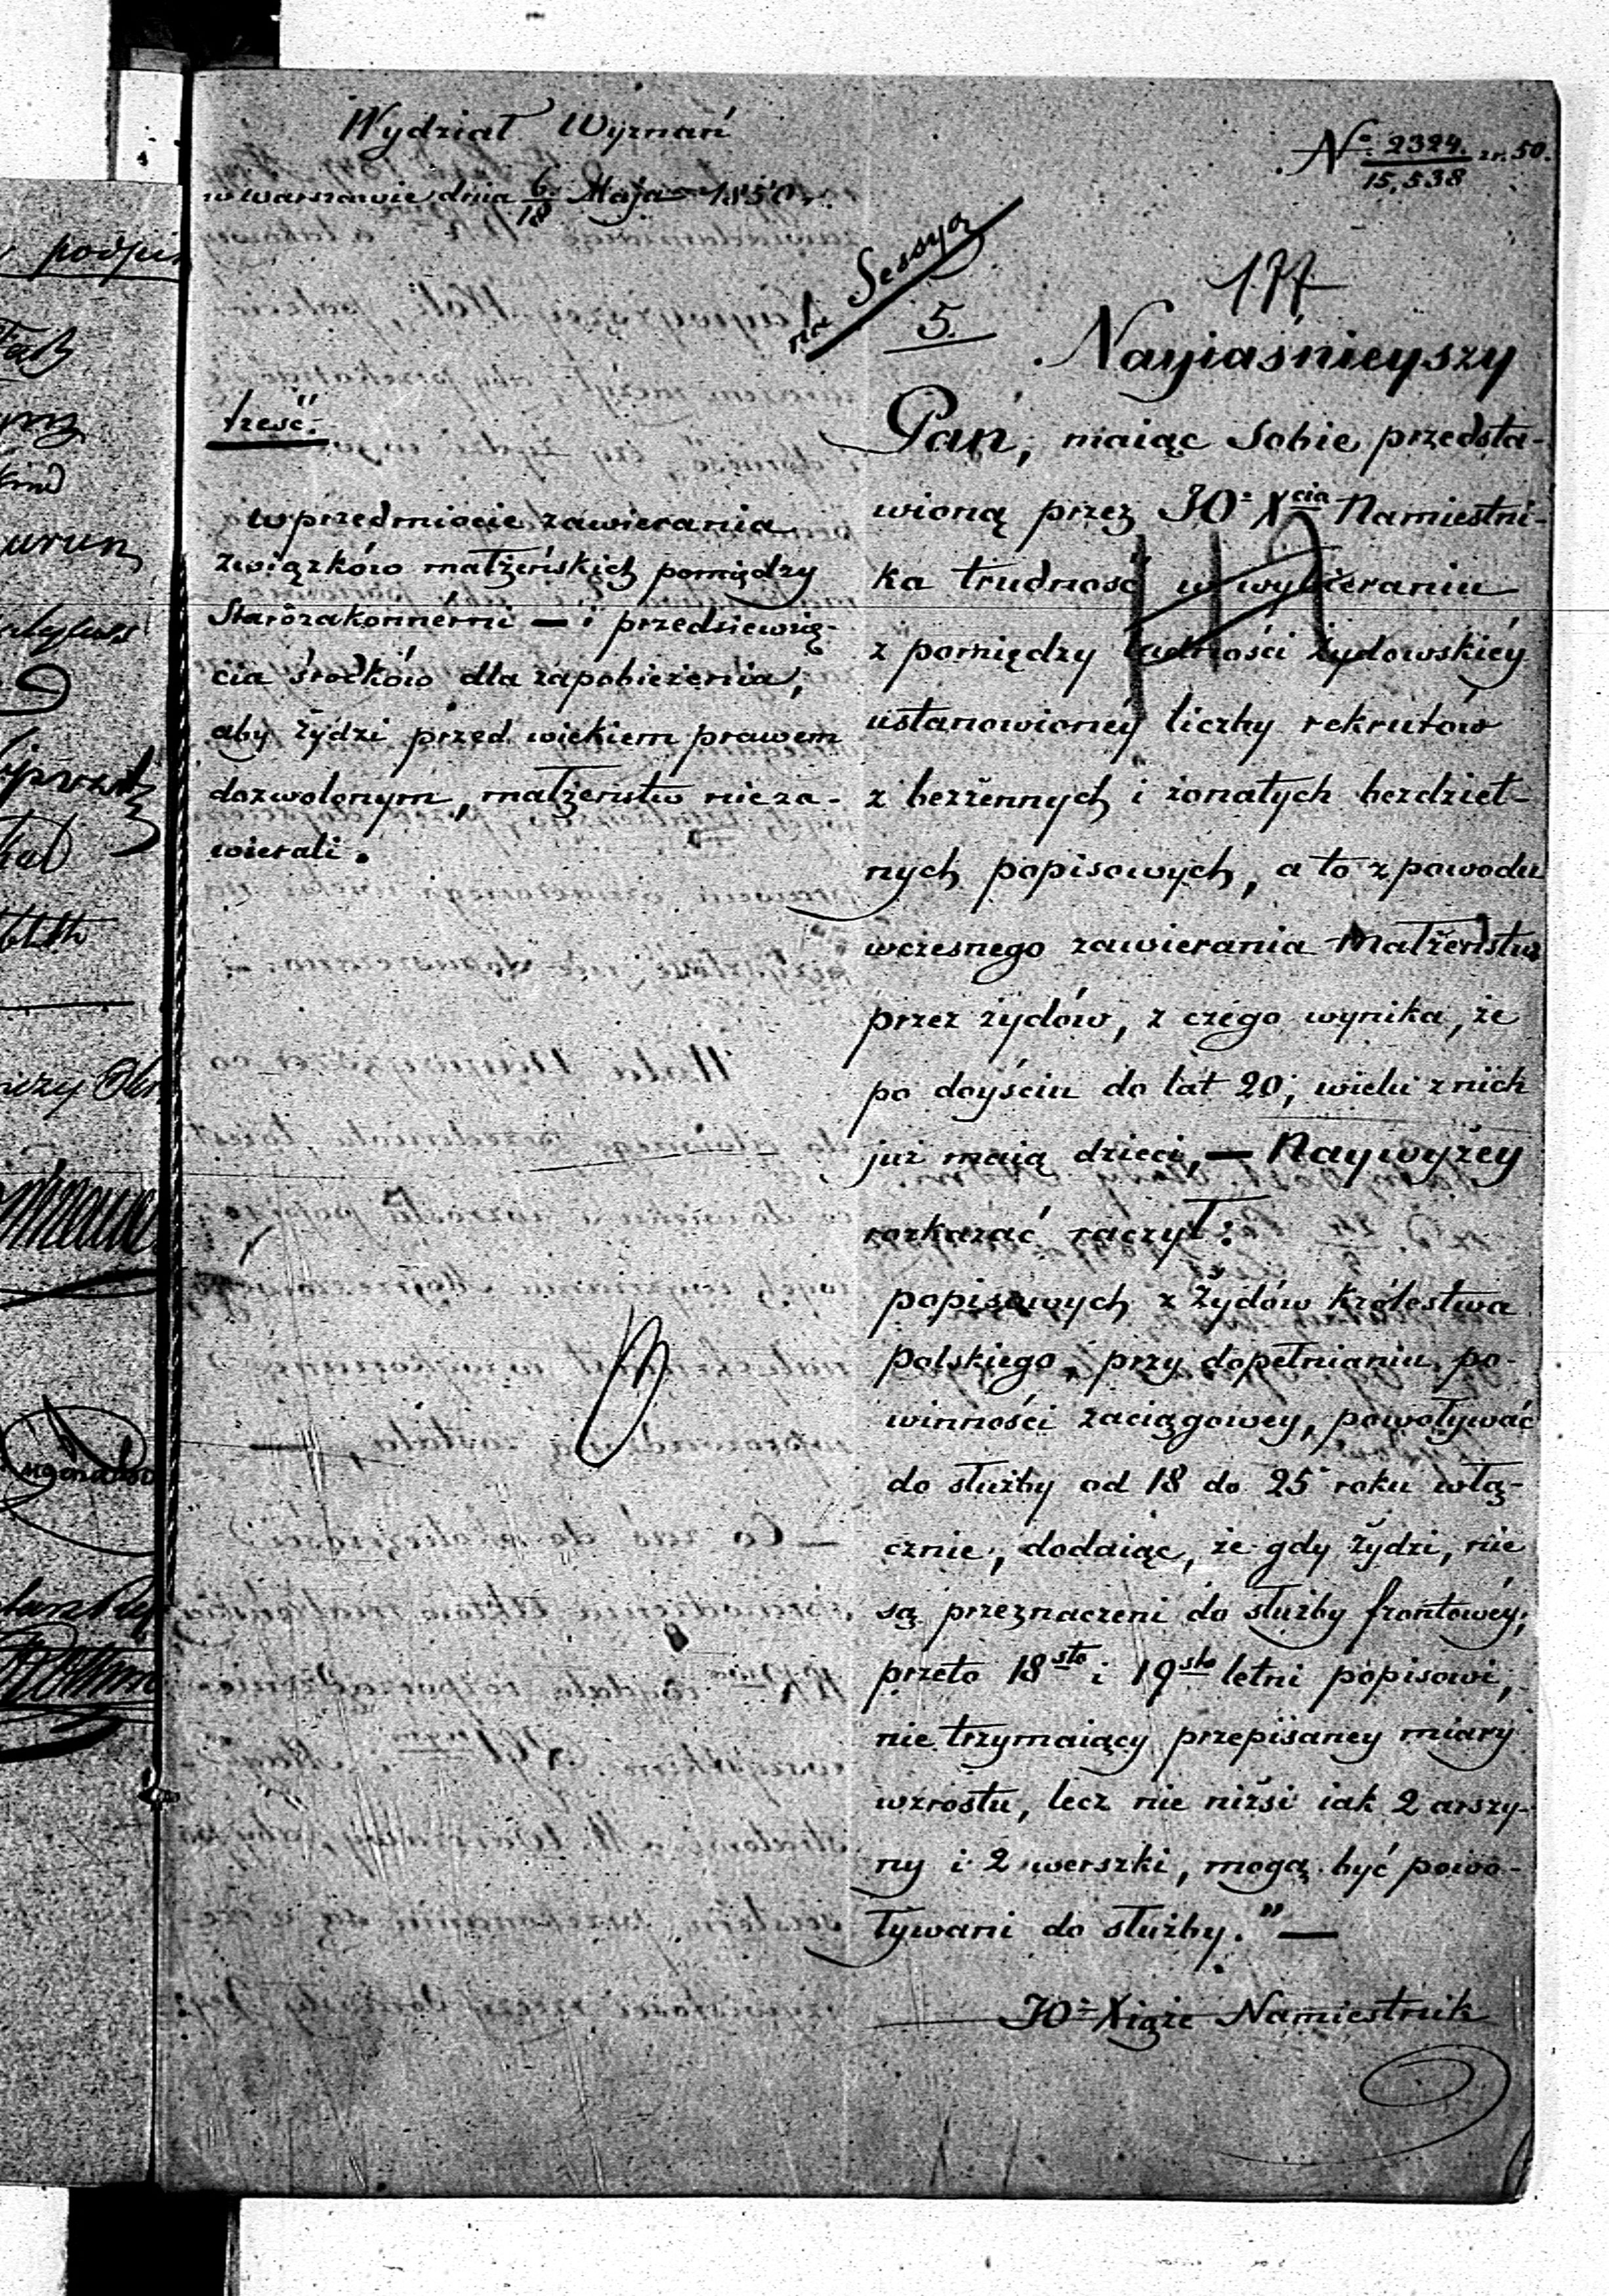 Wydział Wyznań
w Warszawie dnia 6/18 Maja 1850 r.
No. 2324./15,538 zr. 50.
na Sessyą
5.
177
treść:
w przedmiocie zawierania
związków małżeńskich pomiędzy
Starozakonnémi — i przedsiewzię-
cia środków dla zapobieżenia,
aby żydzi przed wiekiem prawem
dozwolonym, małżeństw nieza-
wierali.
Nayiaśnieyszy
Pan, maiąc Sobie przedsta-
wioną przez JO. Xcia Namiestni-
ka trudność w wybieraniu
z pomiędzy ludności żydowskiéy
ustanowionéy liczby rekrutów
z bezżennych i żonatych bezdziet-
nych popisowych, a to z powodu
wczesnego zawierania Małżeństw
przez żydów, z czego wynika, że
po doyściu do lat 20, wielu z nich
już maią dzieci, — Naywyżey
rozkazać raczył:
popisowych z Żydów Królestwa
Polskiego, przy dopełnianiu po-
winności zaciągowey, powoływać
do służby od 18 do 25 roku włą-
cznie, dodaiąc, że gdy żydzi, nie
są przeznaczeni do służby frontowéy,
przeto 18sto i 19sto letni popisowi,
nie trzymaiący przepisaney miary
wzrostu, lecz nie niżsi iak 2 arszy-
ny i 2 werszki, mogą być powo-
ływani do służby." —
JO. Xiąże Namiestnik